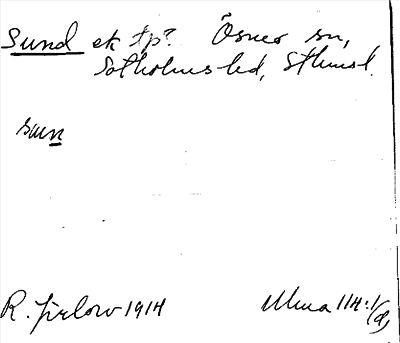 Sund ek tp? Ösmo sn,
Sotholms hd, Sthmsl.
sun
R. Jirlow 1914
Ulma 114:1
(d)